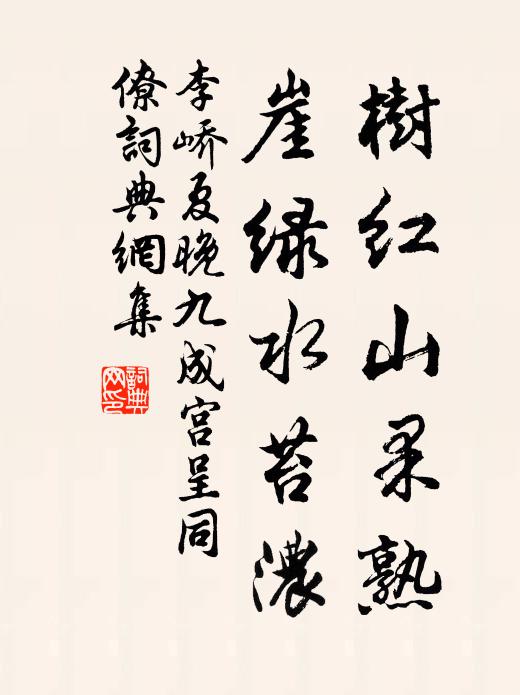 樹紅山果熟
崖綠水苔濃
李嶠夏晚九成宮呈同
僚詞典網集
詞典網印